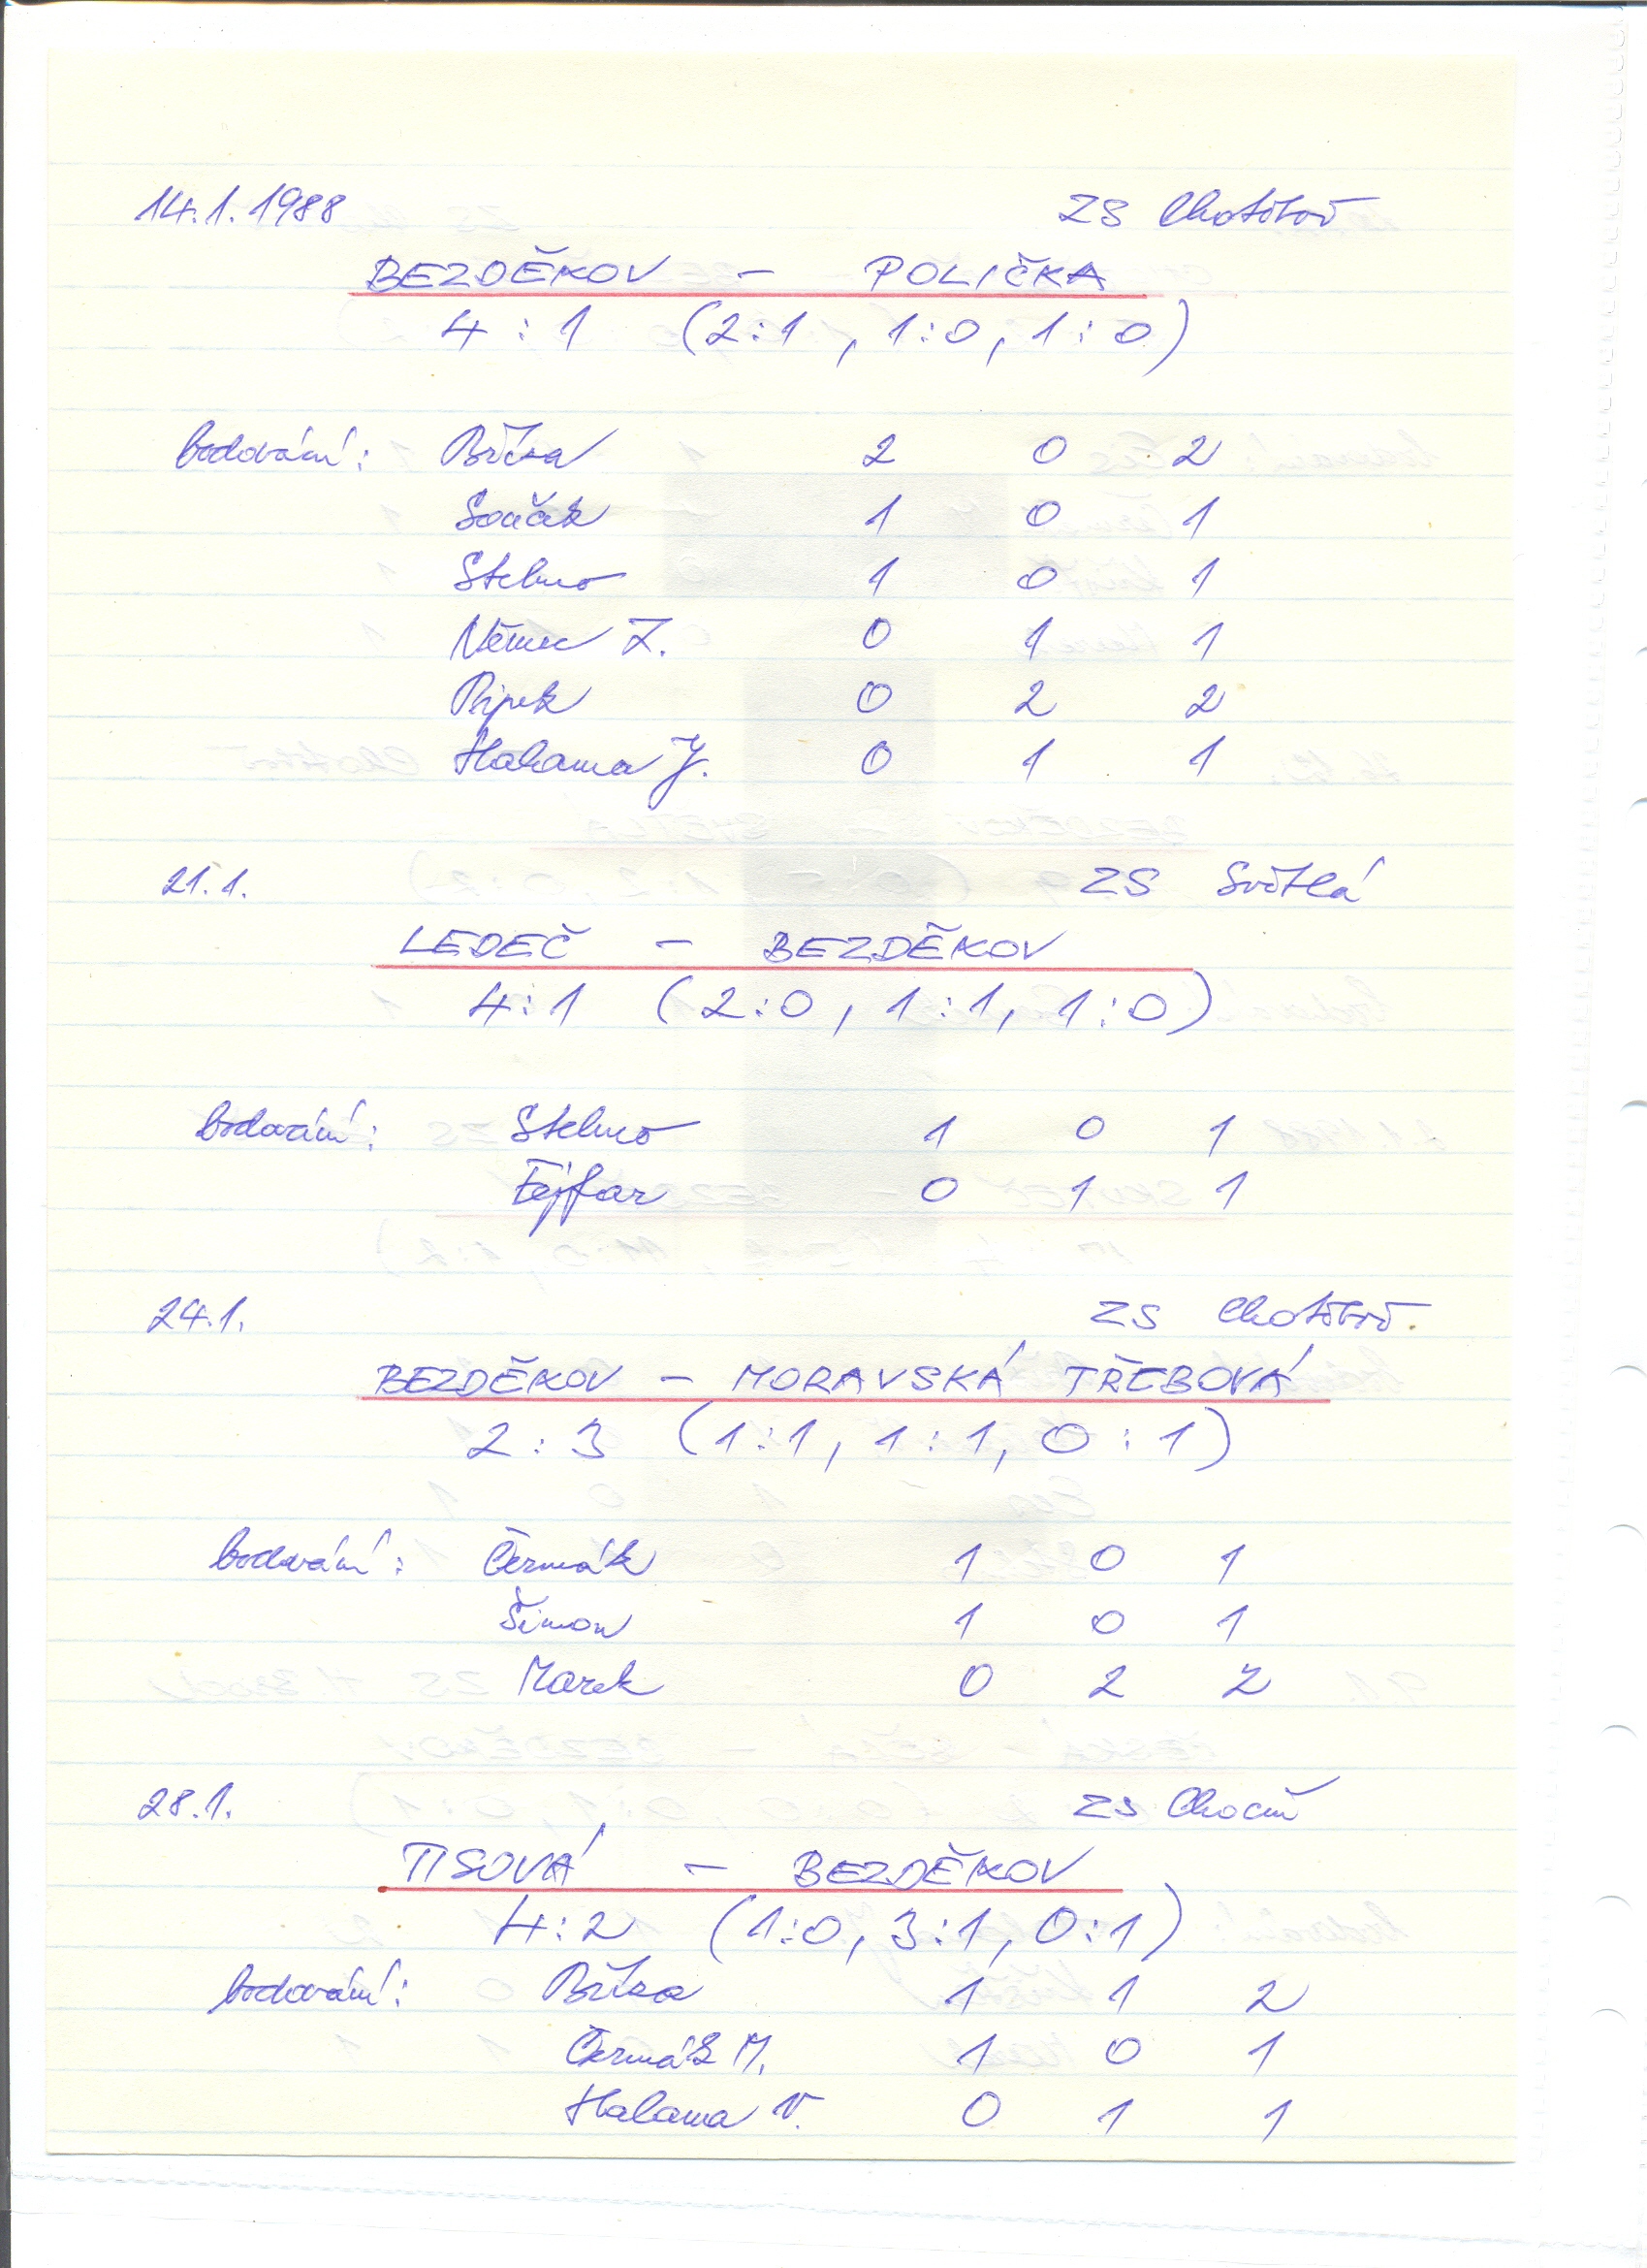 14.1.1988 ZS Chotěboř
BEZDĚKOV - POLIČKA
4:1 (2:1, 1:0, 1:0)
bodování: Bříza 2 0 2
Souček 1 0 1
Stehno 1 0 1
Němec Z. 0 1 1
Pipek 0 2 2
Halama J. 0 1 1
21.1. ZS Světlá
LEDEČ - BEZDĚKOV
4:1 (2:0, 1:1, 1:0)
bodování: Stehno 1 0 1
Fejfar 0 1 1
24.1. ZS Chotěboř.
BEZDĚKOV - MORAVSKÁ TŘEBOVÁ
2:3 (1:1, 1:1, 0:1)
bodování: Čermák 1 0 1
Šimon 1 0 1
Marek 0 2 2
28.1. ZS Choceň
TISOVÁ - BEZDĚKOV
4:2 (1:0, 3:1, 0:1)
bodování: Bříza 1 1 2
Čermák M. 1 0 1
Halama V. 0 1 1